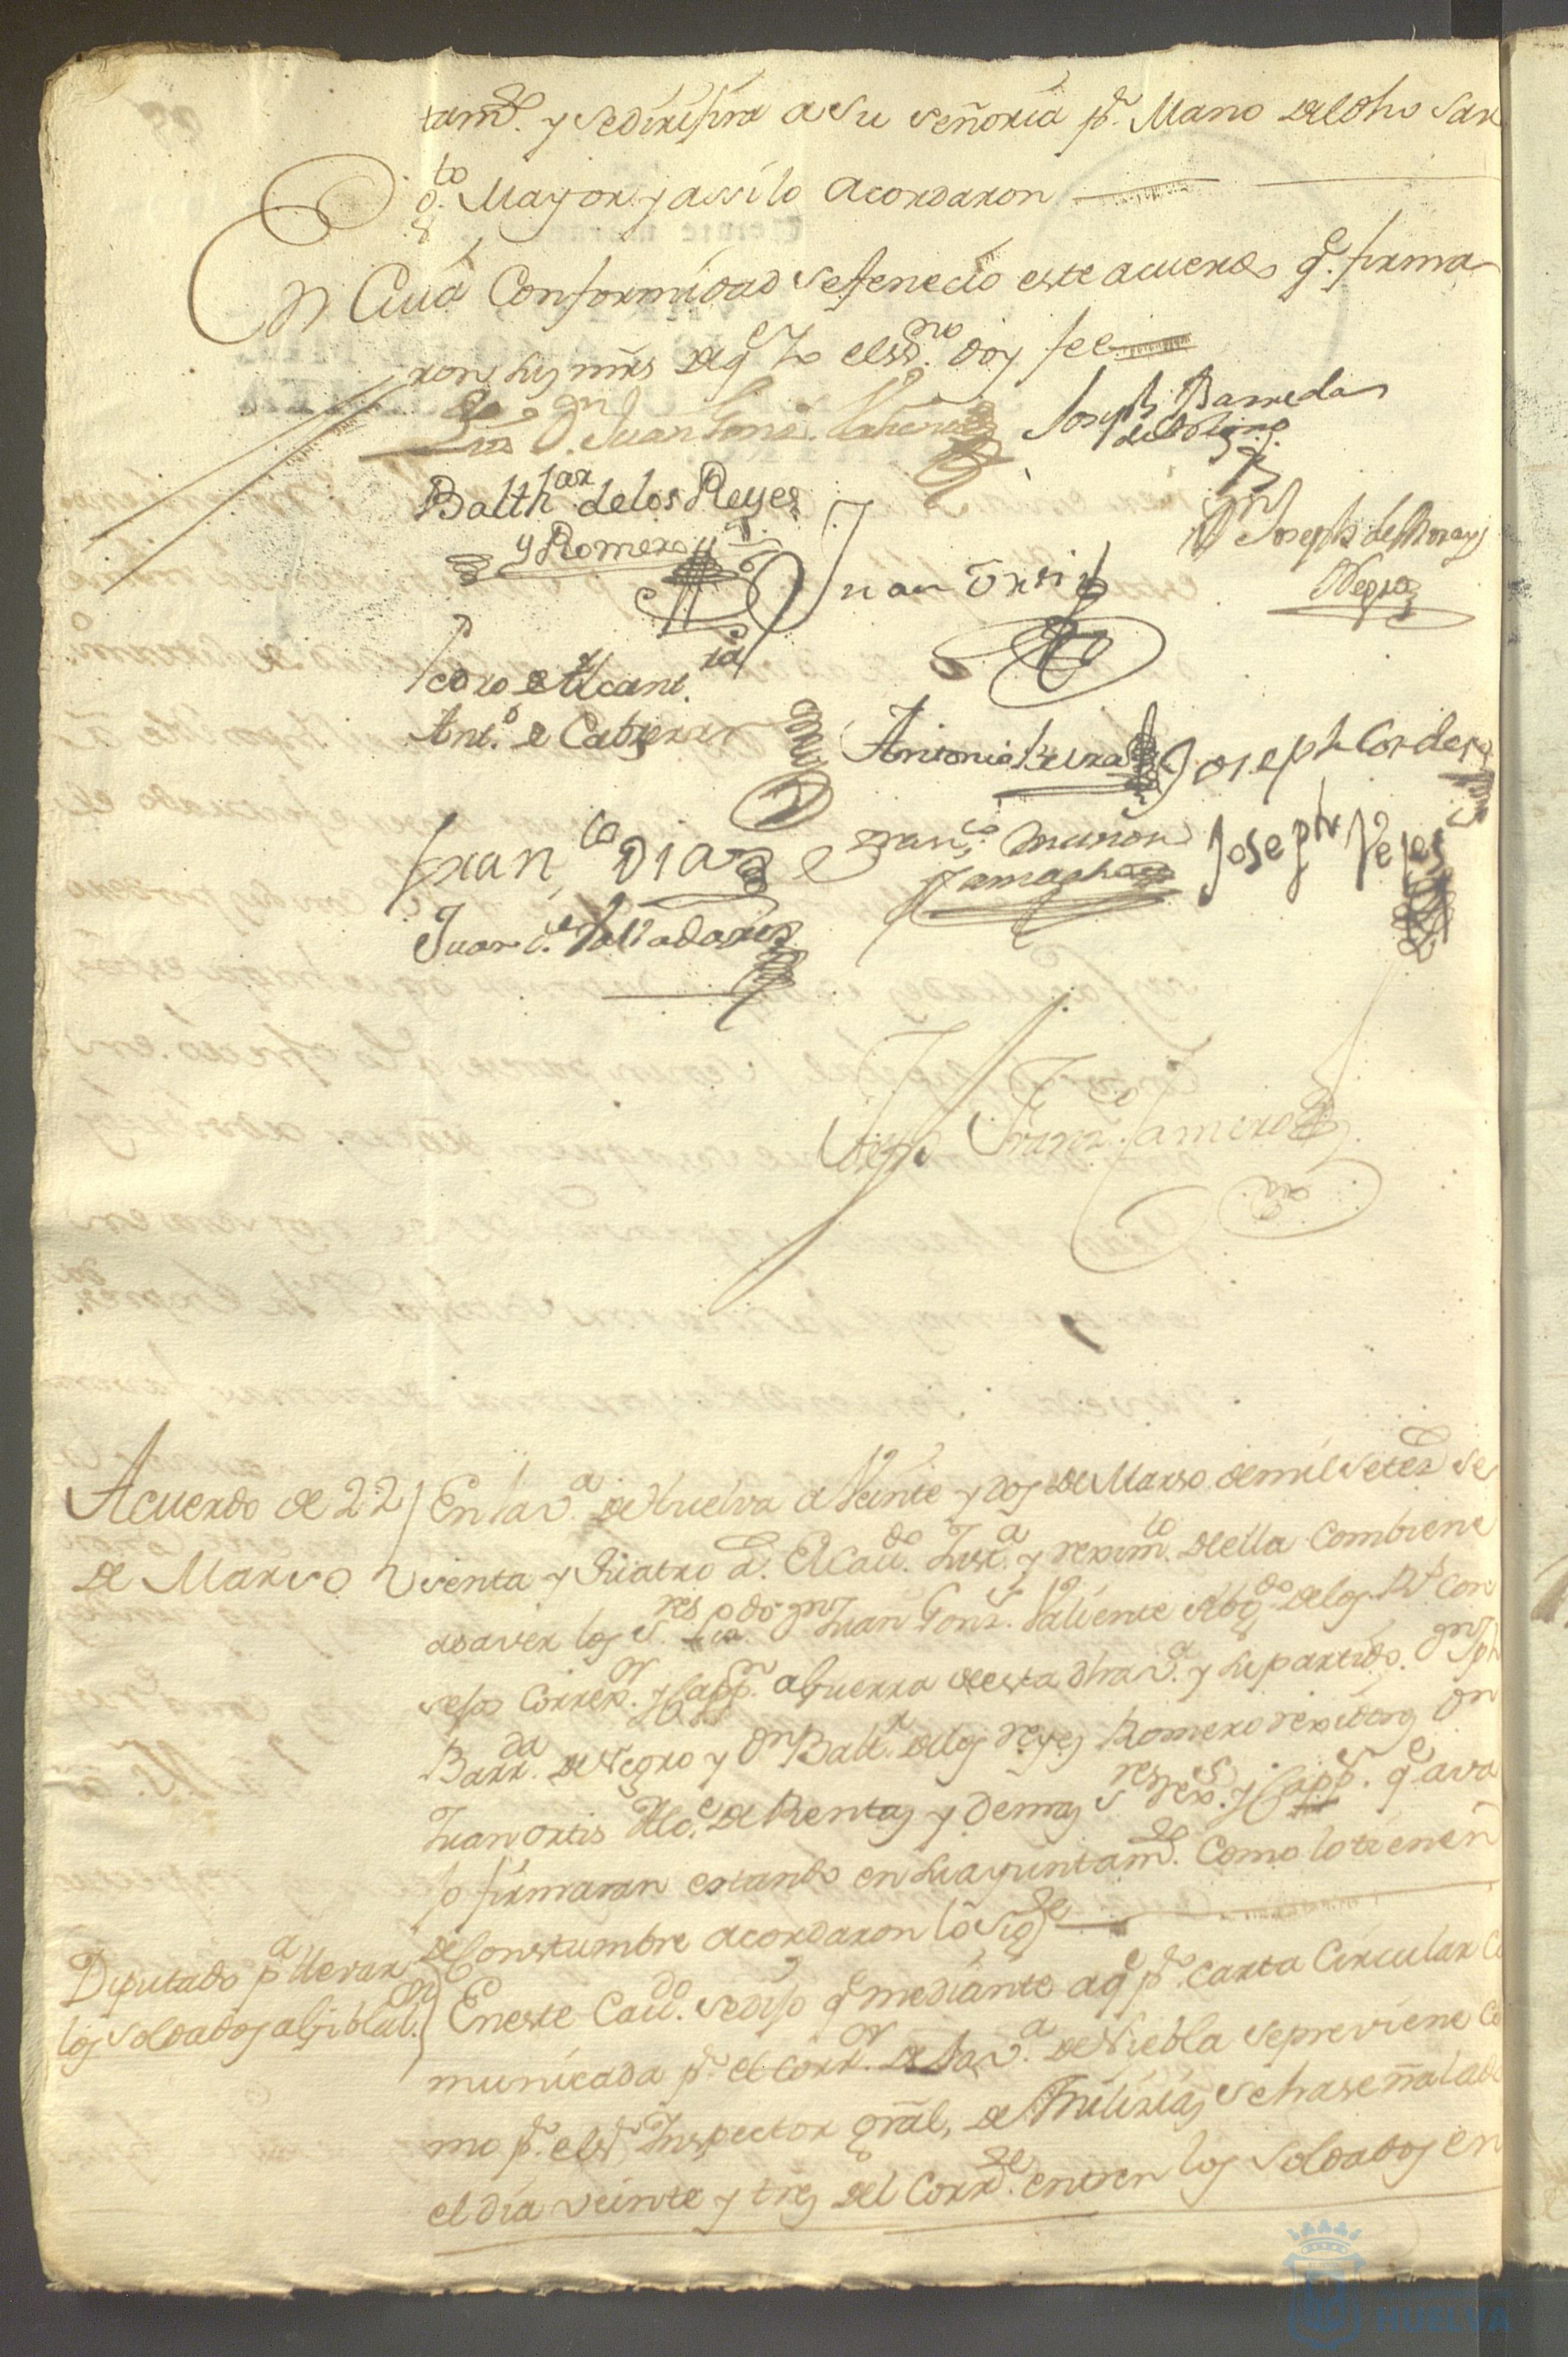 tamte. y se dirisira a Su Señoria pr. Mano del dho Sarx
to Mayor y assi lo acordaron
En Cuia Conformidad se fenecio este acuerdo qe. firma
ron sus mrds de qe Yo el ssno. doy fee
Lizdo Dn. Juan Gonz. Valiente
Joseph Barreda
Balthar de los Reyes
y Romero
Juan Ortiz
Dn Joseph de
Negro
Pedro de Alcant.ra
Anto. de Cabrera
Antonio
Joseph Cordero
Franco Diaz
Franco
Joseph
Juan de Valladares
Franco. Jamero
Acuerdo de 22
de Marso
En la va. de Huelva a Veinte y dos de Marso de mil setes se
senta y Quatro as. El Caudo. Justa. y reximto. de ella combiene
a saver los Sres Lizdo. Dn Juan Gonz. Valiente Abogdo de los Rs. Con
sejos Correxor. y Cappn. a Guerra de esta dha va. y su partido. Dn Jph
Barrda. de Negro y Dn Baltr. de los reyes Romero rexidores Dn
Juan Ortis Alce. de Rentas y demas Sres rexs. y Capps. qe ava
jo firmaran estando en su ayuntamte. Como lo tienen
de Constumbre acordaron lo sigte
Diputado pa llevar
los Soldados a Jibraln.
En este Caudo. se dijo qe mediante a qe pr. carta Circular co
municada pr. el Corror. de la va. de Niebla se previene co
mo pr. el sr. Inspector gral, de Milisias se ha señalado
el dia veinte y tres del Corrte. entren los Soldados en
HUELVA